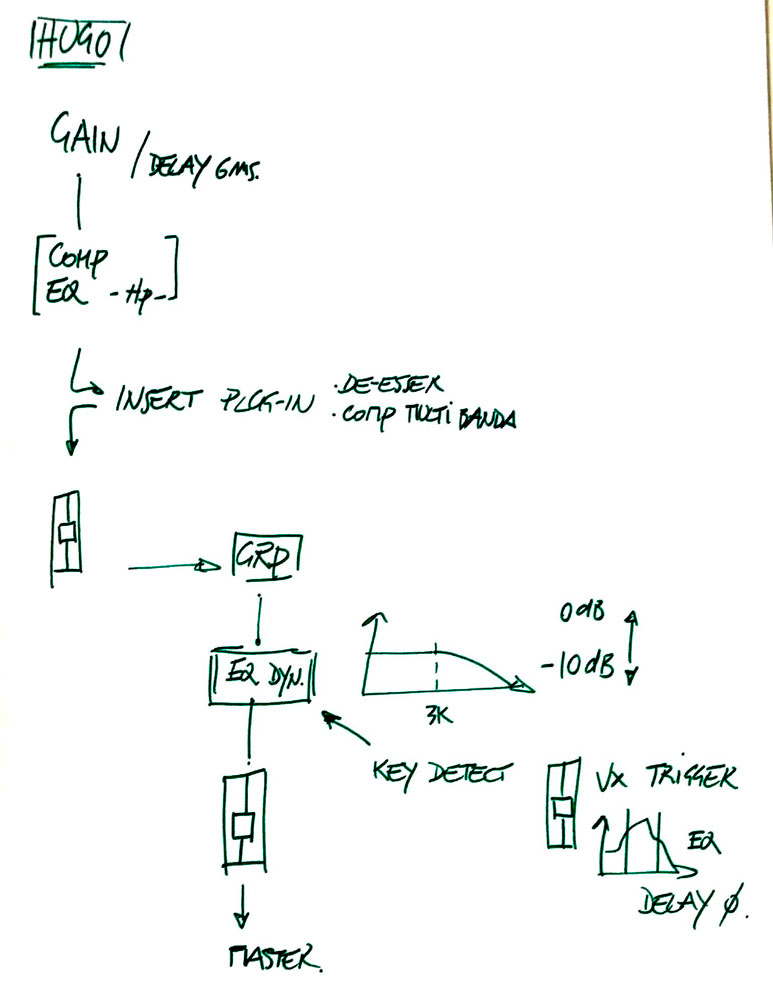 HUGO
GAIN / DELAY 6MS.
[COMP
EQ -Hp-]
INSERT PLUG-IN
.DE-ESSER
.COMP MULTIBANDA
GRP
EQ DYN.
0dB
-10dB
3K
KEY DETECT
VX TRIGGER
EQ
DELAY Ø.
MASTER.